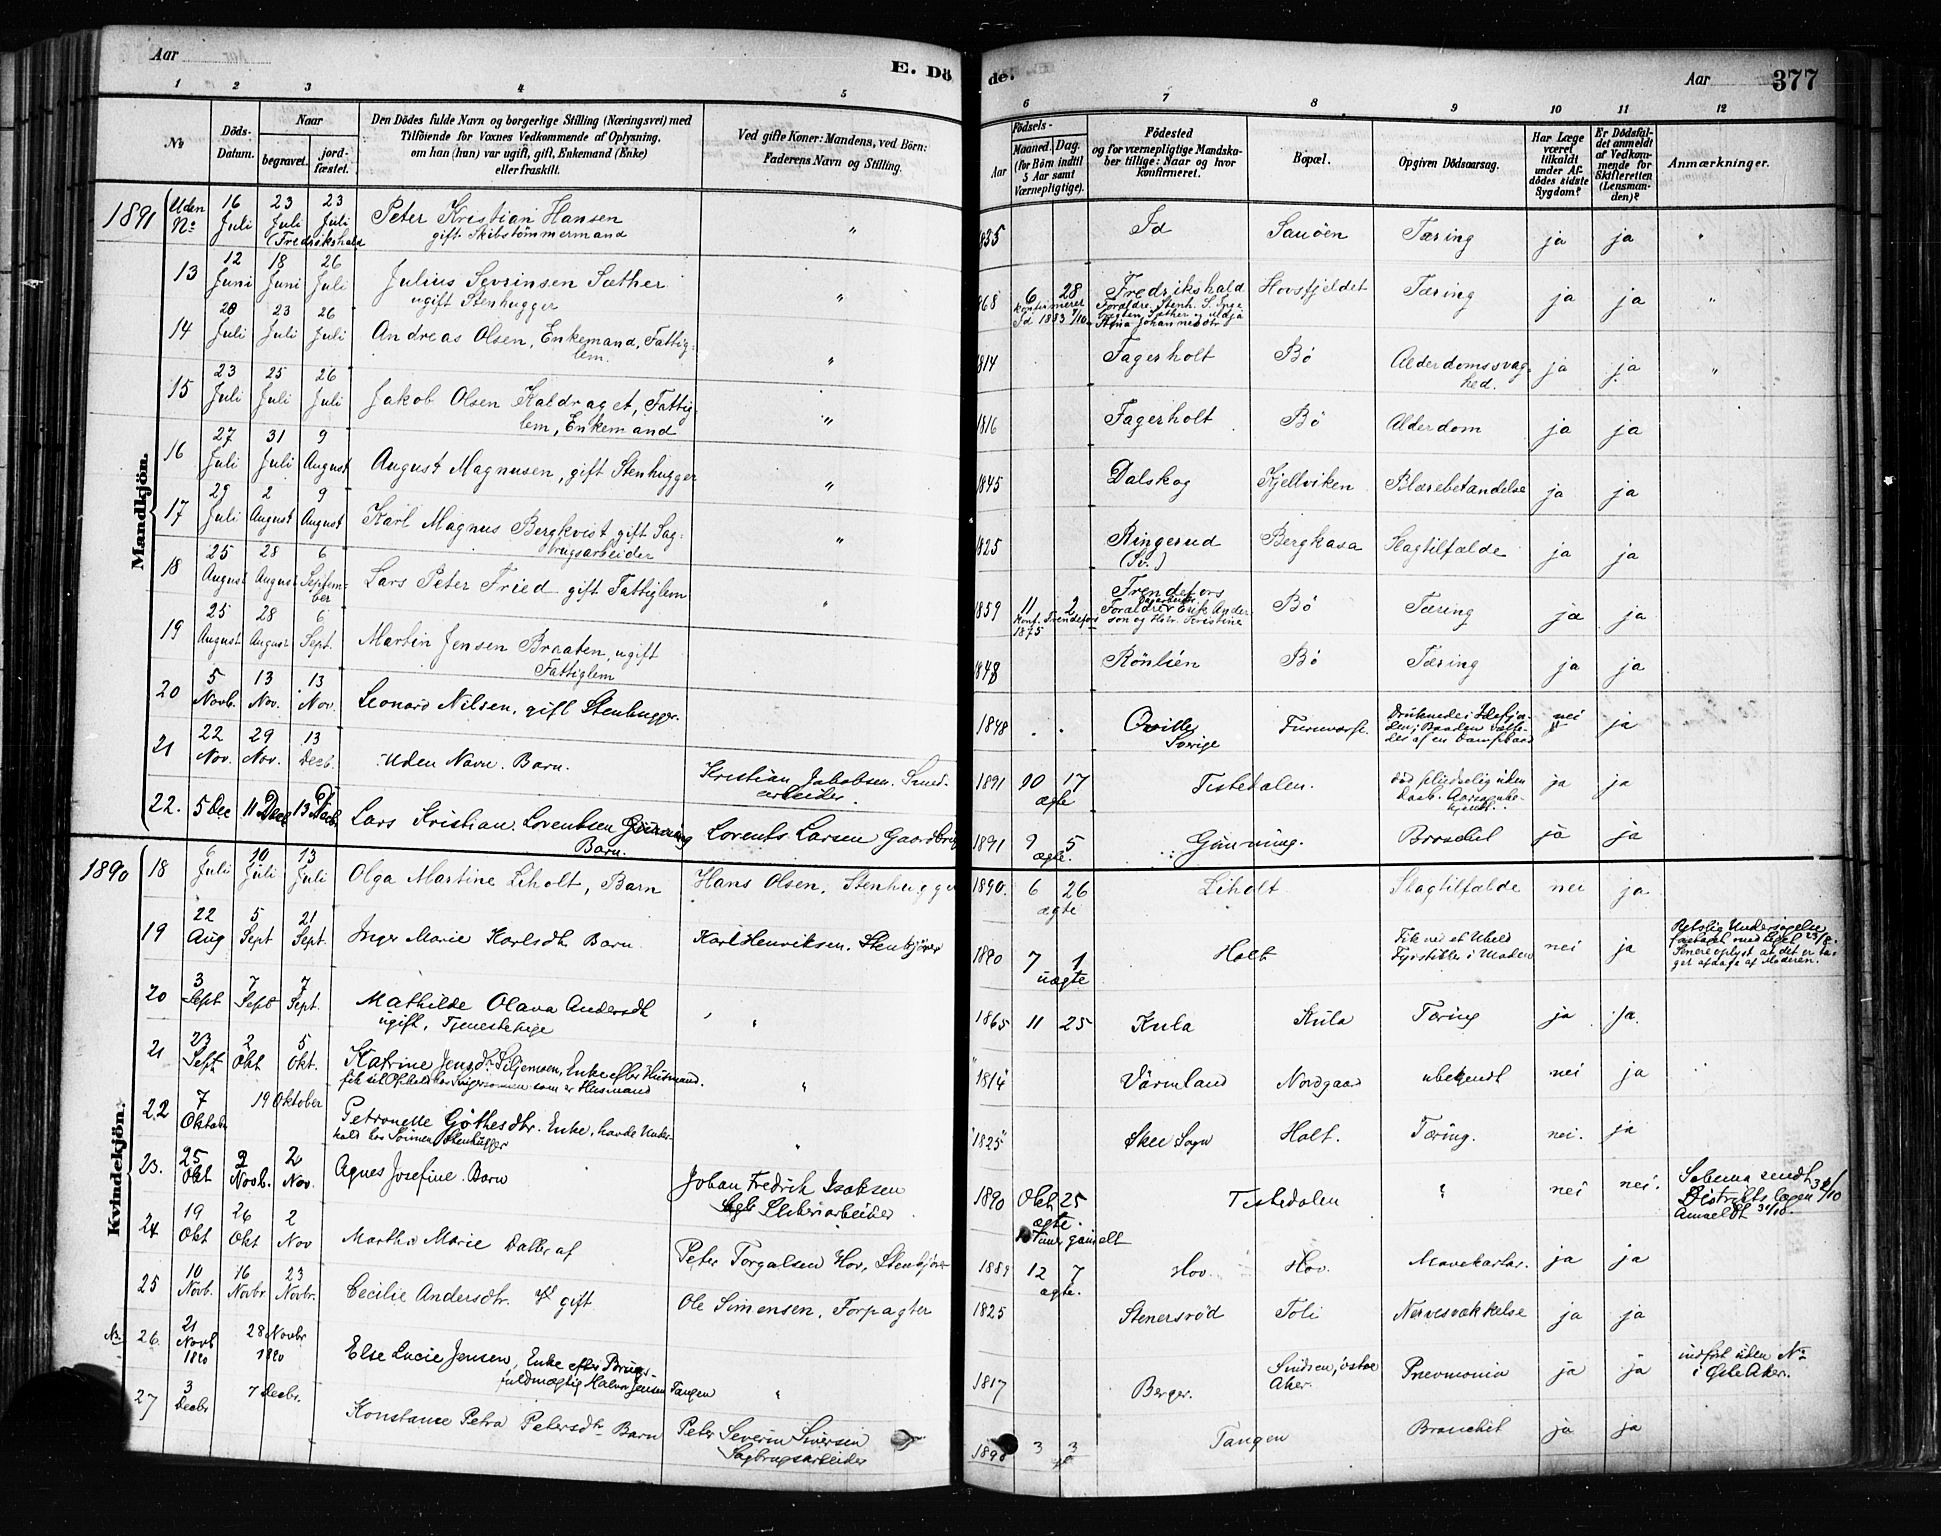 Aar
E. Dö
de.
Aar
377
1 2 3 4 5 6 7 8 9 10 11 12
No
Döds-
Datum.
Naar
begravet.
jord-
fæstet.
Den Dödes fulde Navn og borgerlige Stilling (Næringsvei) med
Tilföiende for Voxnes Vedkommende af Oplysning,
om han (hun) var ugift, gift, Enkemand (Enke)
eller fraskilt.
Ved gifte Koner: Mandens, ved Börn:
Faderens Navn og Stilling.
Födsels-
Aar
Maaned.
Dag.
(for Börn indtil
5 Aar samt
Værnepligtige).
Födested
og for værnepligtige Mandska-
ber tillige: Naar og hvor
konfirmeret.
Bopæl.
Opgiven Dödsaarsag.
Har Læge
været
tilkaldt
under Af-
dödes sidste
Sygdom?
Er Dödsfal-
det anmeldt
af Vedkom-
mende for
Skifteretten
(Lensman-
den)?
Anmærkninger.
Mandkjön.
1891 Uden No 16 Juli 23 Juli 23 Juli Peter Kristian Hansen " 1835 Id Sauöen Tæring ja ja "
(Fredrikshald gift Skibstömmermand
13 12 Juni 18 Juni 26 Juli Julius Sevrinsen Sæther " 1868 6 28 Fredrikshald Hovsfjeldet Tæring ja ja "
ugift Stenhugger konfirmeret Id 1883 Forældre. Stenh. S.
14 20 Juli 23 Juli 26 Juli Andreas Olsen, Enkemand, Fattig- " 1814 Fagerholt Bö Alderdomssvag- ja ja "
lem. hed.
15 23 Juli 25 Juli 26 Juli Jakob Olsen Kaldraget, Fattig- " 1816 Fagerholt Bö Alderdom ja ja
lem, Enkemand
16 27 Juli 31 Juli 9 August August Magnusen, gift Stenhugger " 1845 Dalskog Kjellviken Blærebetændelse ja ja
17 29 Juli 2 August 9 August Karl Magnus Bergkvist gift Sag- " 1825 Ringerud Bergkasa Slagtilfælde ja ja
brugsarbeider (Sv.)
18 25 August 28 August 6 September Lars Peter Fried gift Fattiglem " 1859 11 2 Trendefors Bö Tæring ja ja
Konf. Trendefors 1875 Forældre Erik Ander-
son og Kristine
19 25 August 28 August 6 Sept. Martin Jensen Braaten, ugift 1848 Rönlien Bö Tæring ja ja
Fattiglem
20 5 Novb. 13 Nov. 13 Nov. Leonard Nilsen, gift Stenhugger. 1848 . . Qville Druknede i Idefjor- nei ja
Sverige den; Baaden
des af en Dampbaad
21 22 Nov. 29 Nov. 13 Decb. Uden Navn. Barn. Kristian Jakobsen. 1891 10 17 Tistedalen. död pludselig uden ja ja
arbeider. ægte
22. 5 Dec 11 Decb 13 Decb. Lars Kristian. Lorentsen Gimming Lorents Larsen Gaardbr 1891 9 5 Gimming. ja ja
Barn. ægte.
Kvindekjön.
1890 18 6 Juli 10 Juli 13 Juli Olga Martine Liholt, Barn Hans Olsen, Stenhugger 1890. 6 26 Liholt Slagtilfælde nei ja
ægte
19 22 Aug 5 Sept 21 Sept. Inger Marie Karlsdtr Barn Karl Henriksen. Stenkjörer 1890 7 1 Holt Fik ved et Uheld nei ja
uægte Fyrstikker i Munden
Retslig Undersögelse
foretaget med Liget 25/8.
Senere oplyst at det er
af Moderen.
20 3 Sept 7 Sept 7 Sept. Mathilde Olava Andersdtr " 1865 11 25 Kula Kula Tæring ja ja.
ugift, Tjenestepige
21 23 Sept 2 Okt 5 Okt. Katrine Jensdr. Siljensen, Enke efter Husmand. " "1814" Värmland Nordgaard ubekjendt nei ja
fik sit Ophold hos Svigersönnen som er Husmand
22 7 Oktober 19 Oktober Petronelle Göthesdtr. Enke, havde Under- " "1825" Skee Sogn Holt. Tæring. nei. ja
hold hos Sönnen Stenhugger
23. 25 Okt 2 Novb. 2 Nov. Agnes Josefine. Barn Johan Fredrik Isaksen 1890 Okt 25 Tistedalen " nei nei.
Sliberiarbeider ægte.
Timer gammelt
Skema sendt
Distriktslægen
Anmeldt 31/10.
24 19 Okt 26 Okt 2 Nov Marthe Marie Datter af Peter Torgalsen Hov, Stenkjörer 1889 12 7 Hov. Hov. Mavekatar. ja ja
ægte.
25 10 Novb. 16 Novbr 23 Novbr. Cecilie Andersdtr. gift Ole Simensen, Forpagter 1825 Stenersröd Toli Nervesvækkelse ja ja
No 26 21 Novb 1890 28 Novbr 1890 Else Lucie Jensen, Enke efter Brugs- " 1817 Berger. Pnevmonia ja ja
fuldmægtig Halvor Jensen Tangen Aker.
indfört uden No
i Östre Aker.
27 3 Decbr 7 Decbr. Konstance Petra Petersdtr Barn Peter Severin Siversen 1890 3 3 Tangen Bronchit ja ja
Sagbrugsarbeider